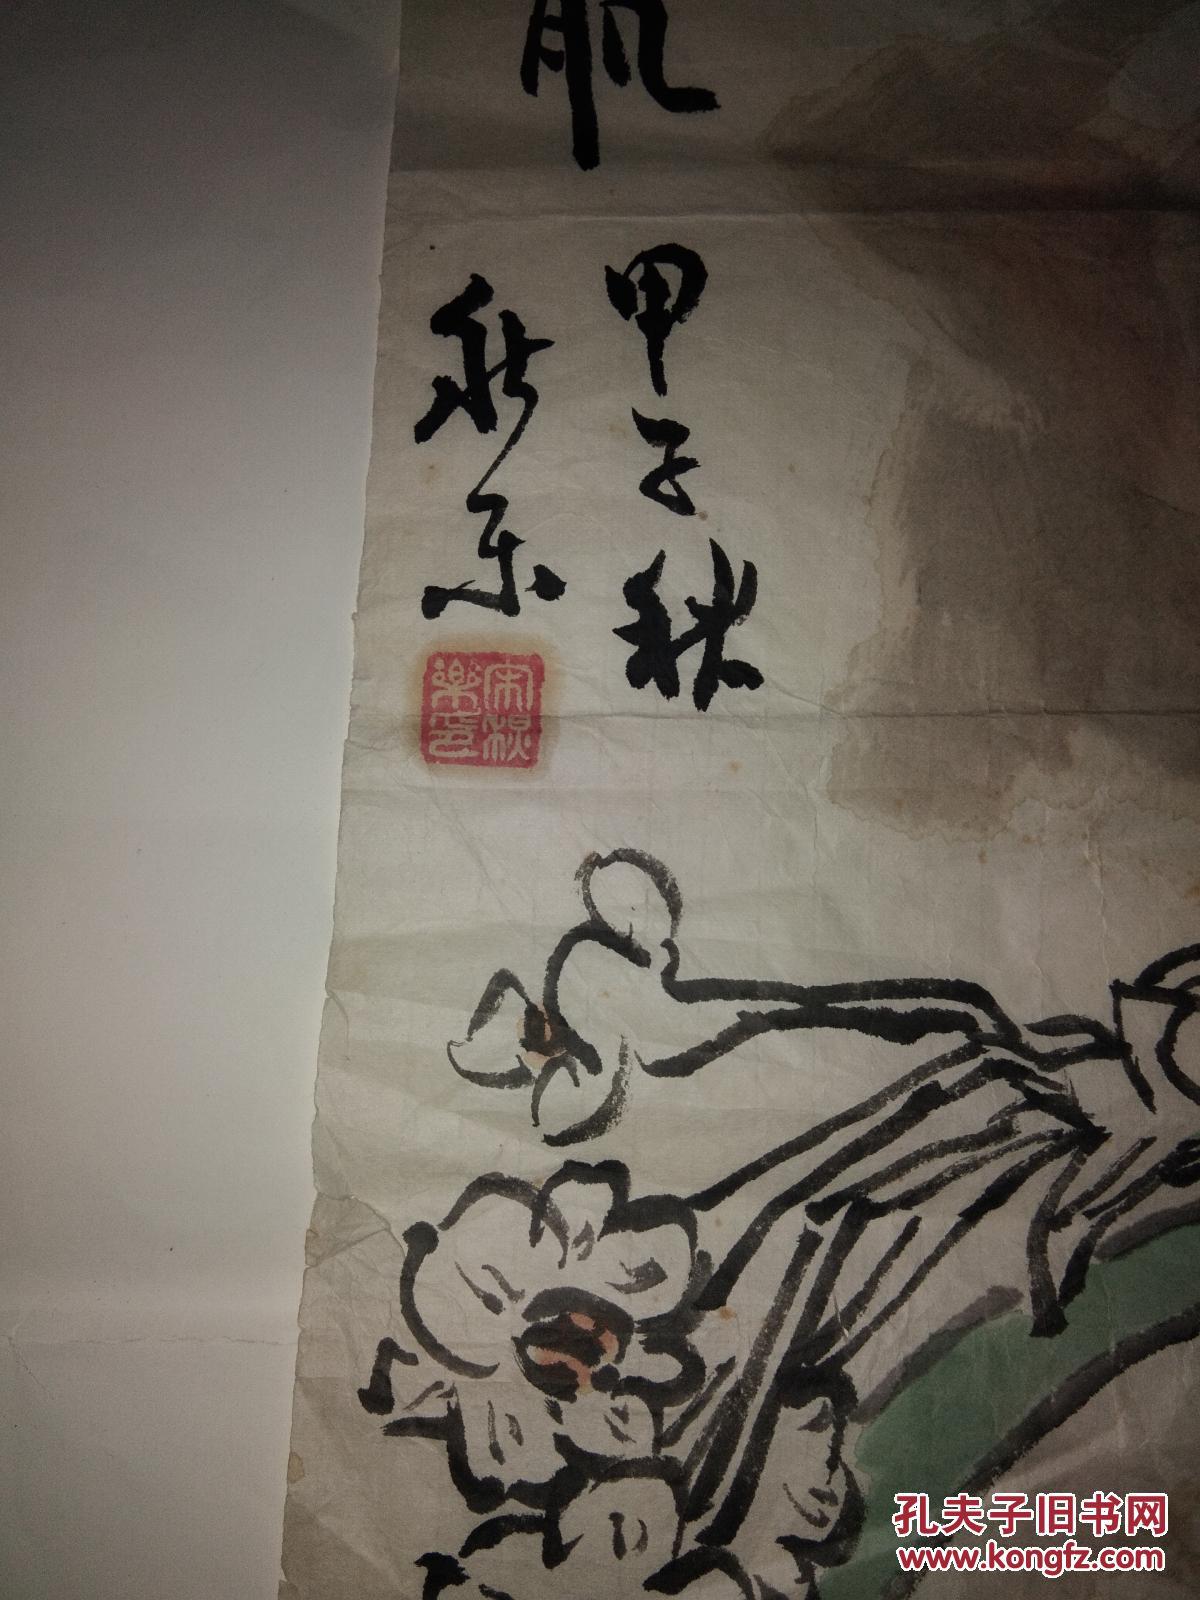 肌
甲子秋
乐
宋
樂印
孔夫子旧书网
www.kongfz.com